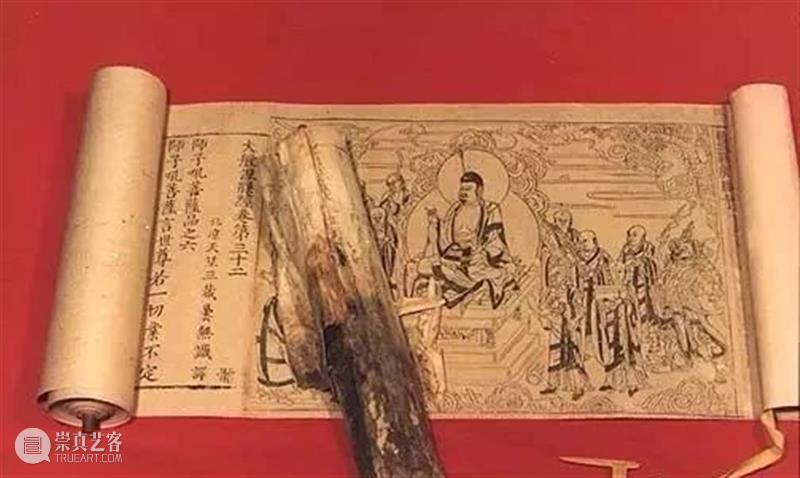 大般涅槃經卷第三十二
北凉天竺三藏曇無讖譯
師子吼菩薩品之六
師子吼菩薩言世尊若一切業不定
崇真艺客
TRUEART.COM